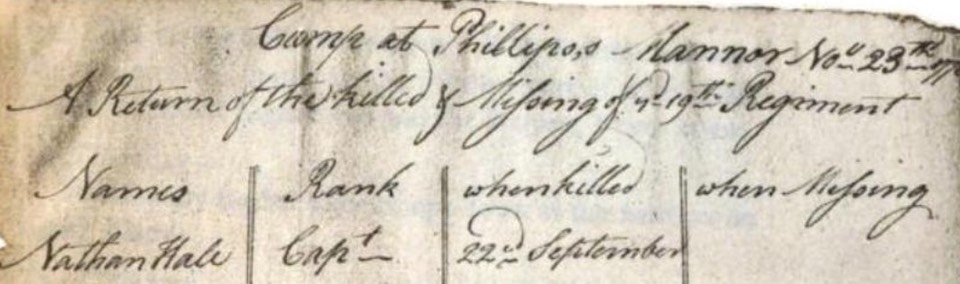 Camp at Phillips,s Mannor Nov 23th
A Return of the killed & Missing of ye 19th Regiment
Names Rank when killed when Missing
Nathan Hale Capt 22nd September